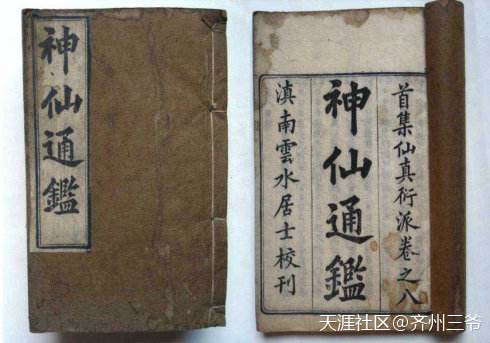 神仙通鑑
首集仙真衍派卷之八
神仙通鑑
滇南雲水居士校刊
天涯社区@齐州三爷